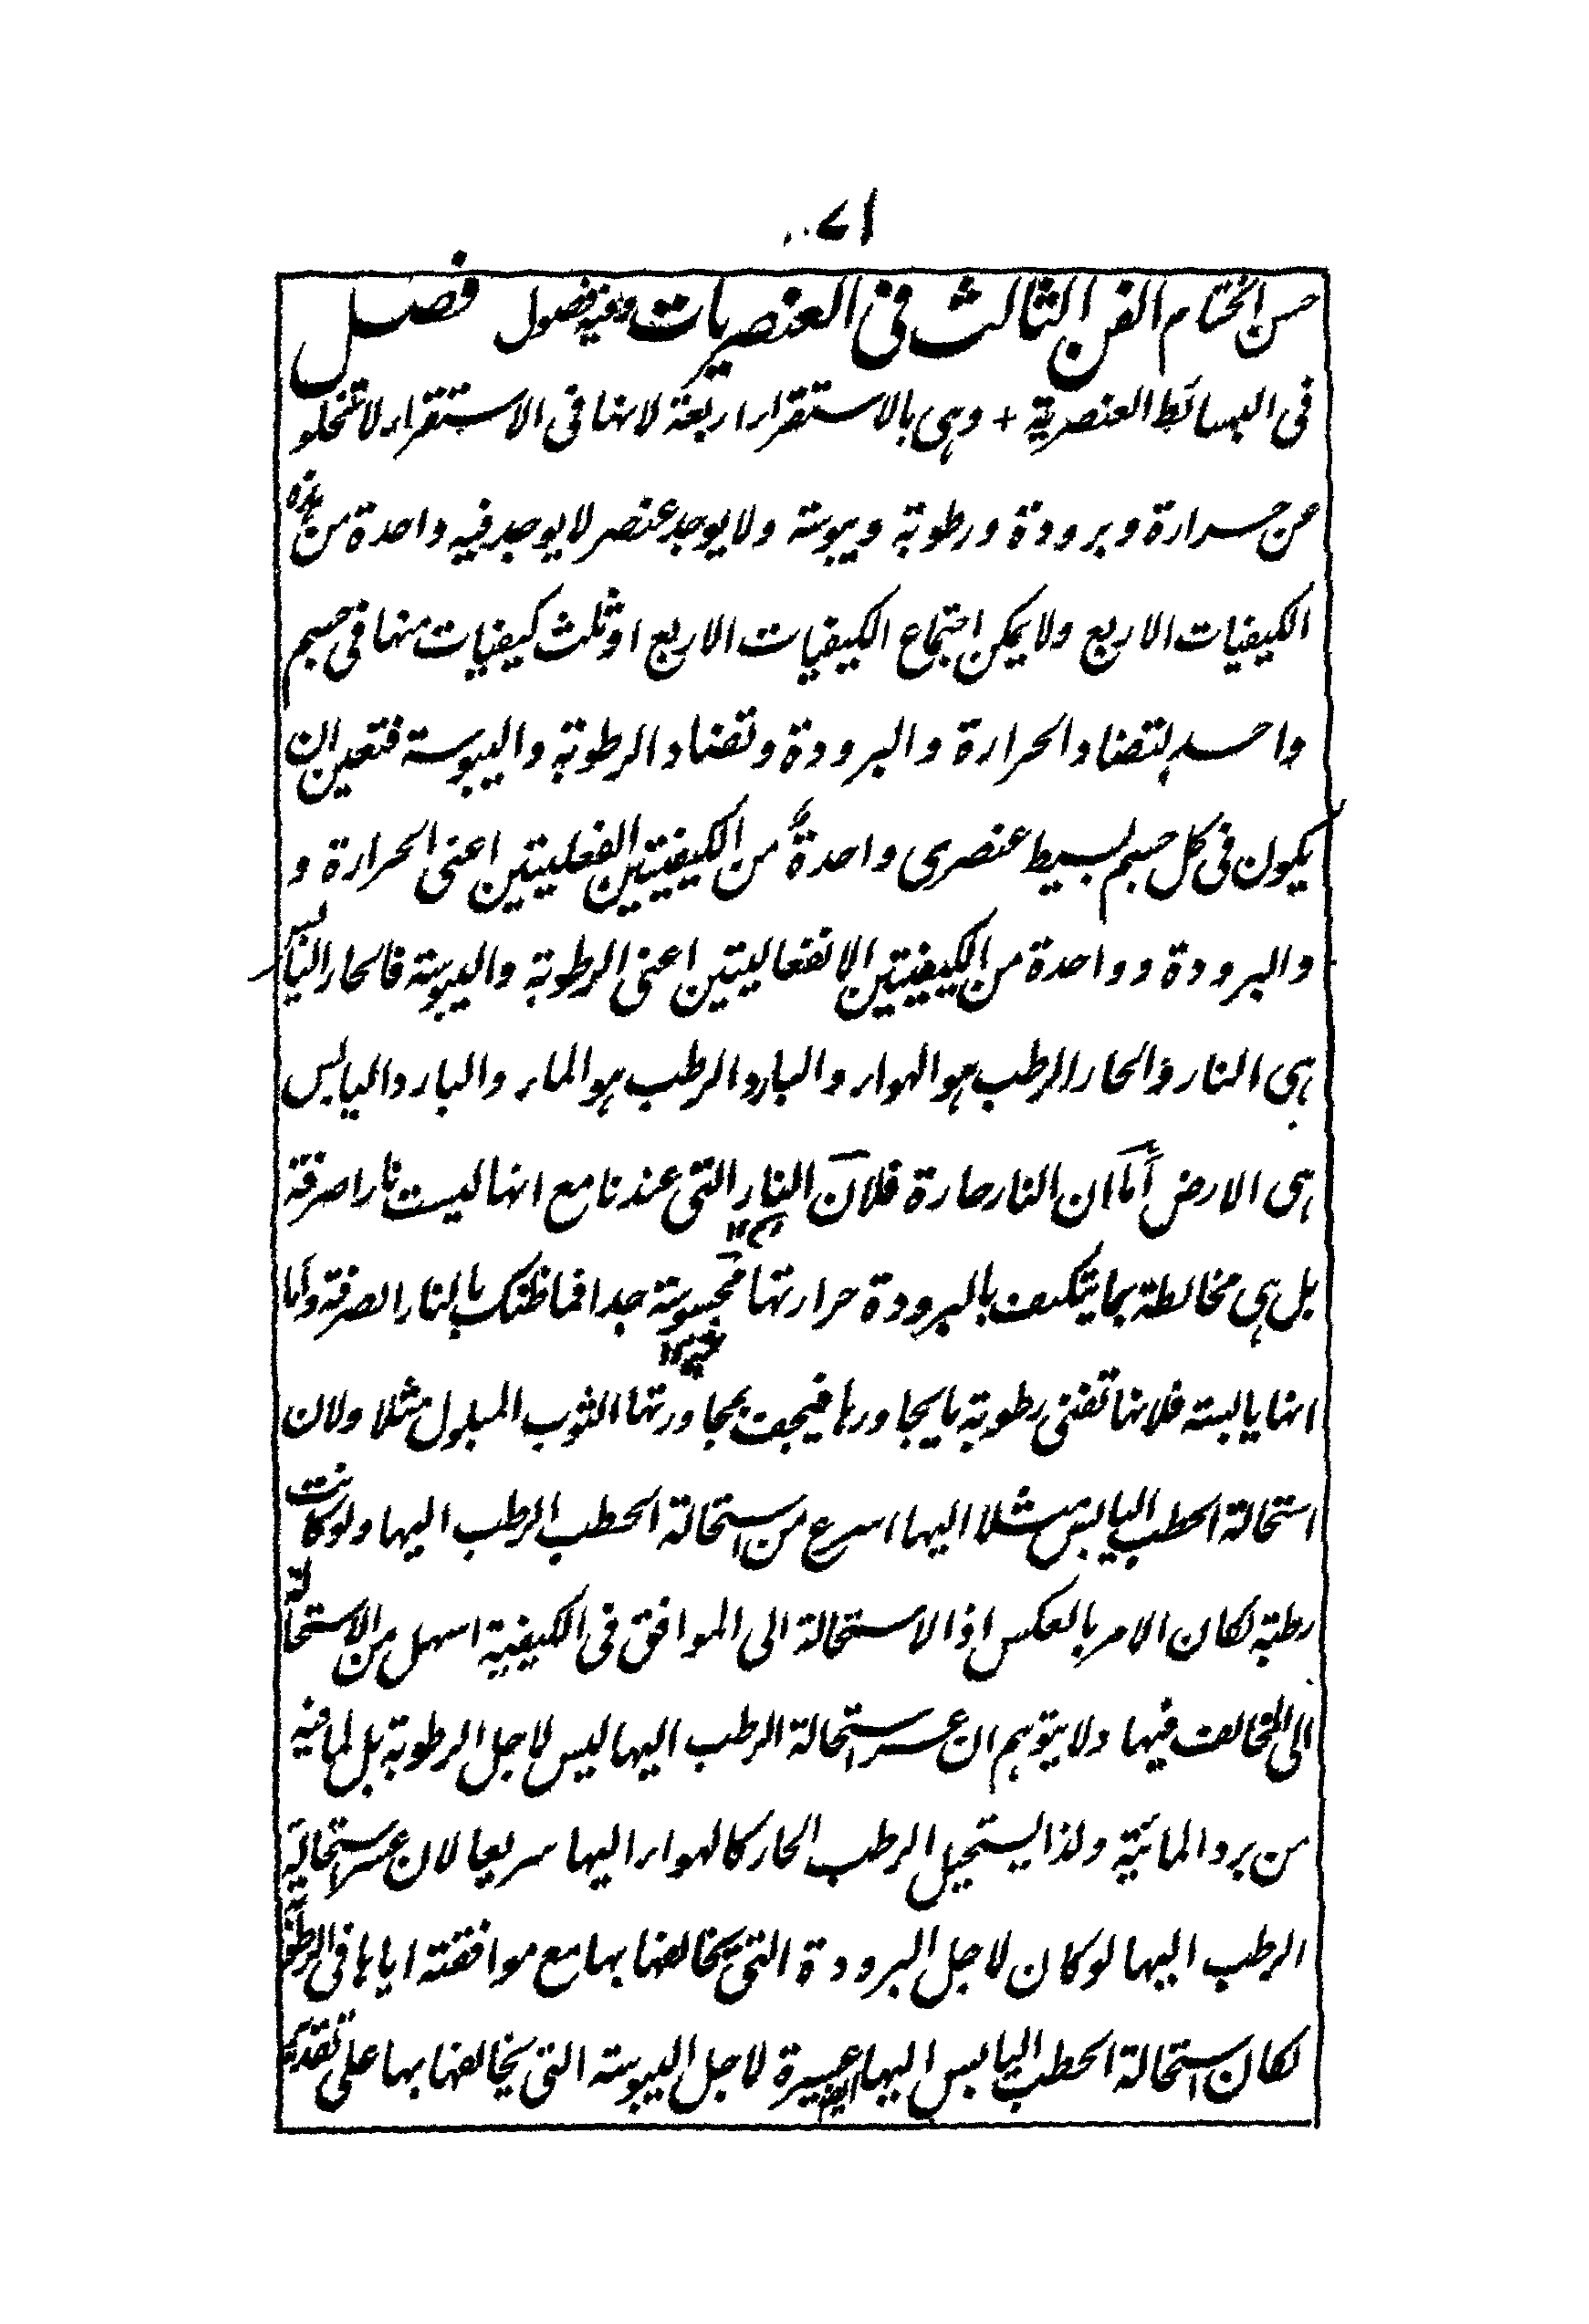 ۷۱
حسن الختام الفن الثالث فی العنصریات وفیه فصول فصل
فی البسائط العنصریة + وهی بالاستقرار اربعة لانها فی الاستقرار لا تخلو
من حرارة وبرودة ورطوبة ویبوسة ولا یوجد عنصر لا یوجد فیه واحدة من هذه
الکیفیات الاربع ولا یمکن اجتماع الکیفیات الاربع او ثلث کیفیات منها فی جسم
واحد لتضاد الحرارة والبرودة وتضاد الرطوبة والیبوسة فتعین ان
یکون فی کل جسم بسیط عنصری واحدة من الکیفیتین الفعلیتین اعنی الحرارة و
والبرودة وواحدة من الکیفیتین الانفعالیتین اعنی الرطوبة والیبوسة فالحار الیابس
هی النار والحار الرطب هو الهواء والبارد الرطب هو الماء والبارد الیابس
هی الارض أما ان النار حارة فلان النار التی عندنا مع انها لیست نارا صرفة
بل هی مخالطة بما یتکیف بالبرودة حرارتها محسوسة جدا فما ظنک بالنار الصرفة واما
انها یابسة فلانها تفنی رطوبة ما یجاورها فیجف بمجاورتها الثوب المبلول مثلا ولان
استحالة الحطب الیابس مثلا الیها اسرع من استحالة الحطب الرطب الیها ولو کانت
رطبة لکان الامر بالعکس اذ الاستحالة الی الموافق فی الکیفیة اسهل من الاستحالة
الی المخالف فیها ولا یتوهم ان عسر استحالة الرطب الیها لیس لاجل الرطوبة بل لما فیه
من برد المائیة ولذا یستحیل الرطب الحار کالهواء الیها سریعا لان عسر استحالة
الرطب الیها لو کان لاجل البرودة التی یخالفها بها مع موافقته ایاها فی الرطوبة
لکان استحالة الحطب الیابس الیها عسیرة لاجل الیبوسة التی یخالفها بها علی تقدیر